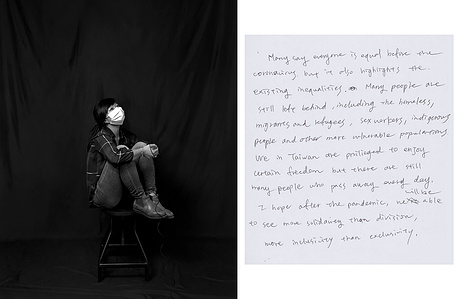 Many say everyone is equal before the
coronavirus but it also highlights the
existing inequalities. Many people are
still left behind, including the homeless,
migrants and refugees, sex workers, indigenous
people and other more vulnerable populations.
We in Taiwan are privileged to enjoy
certain freedom but there are still
many people who pass away every day.
I hope after the pandemic, we will be able
to see more solidarity than division,
more inclusivity than exclusivity.